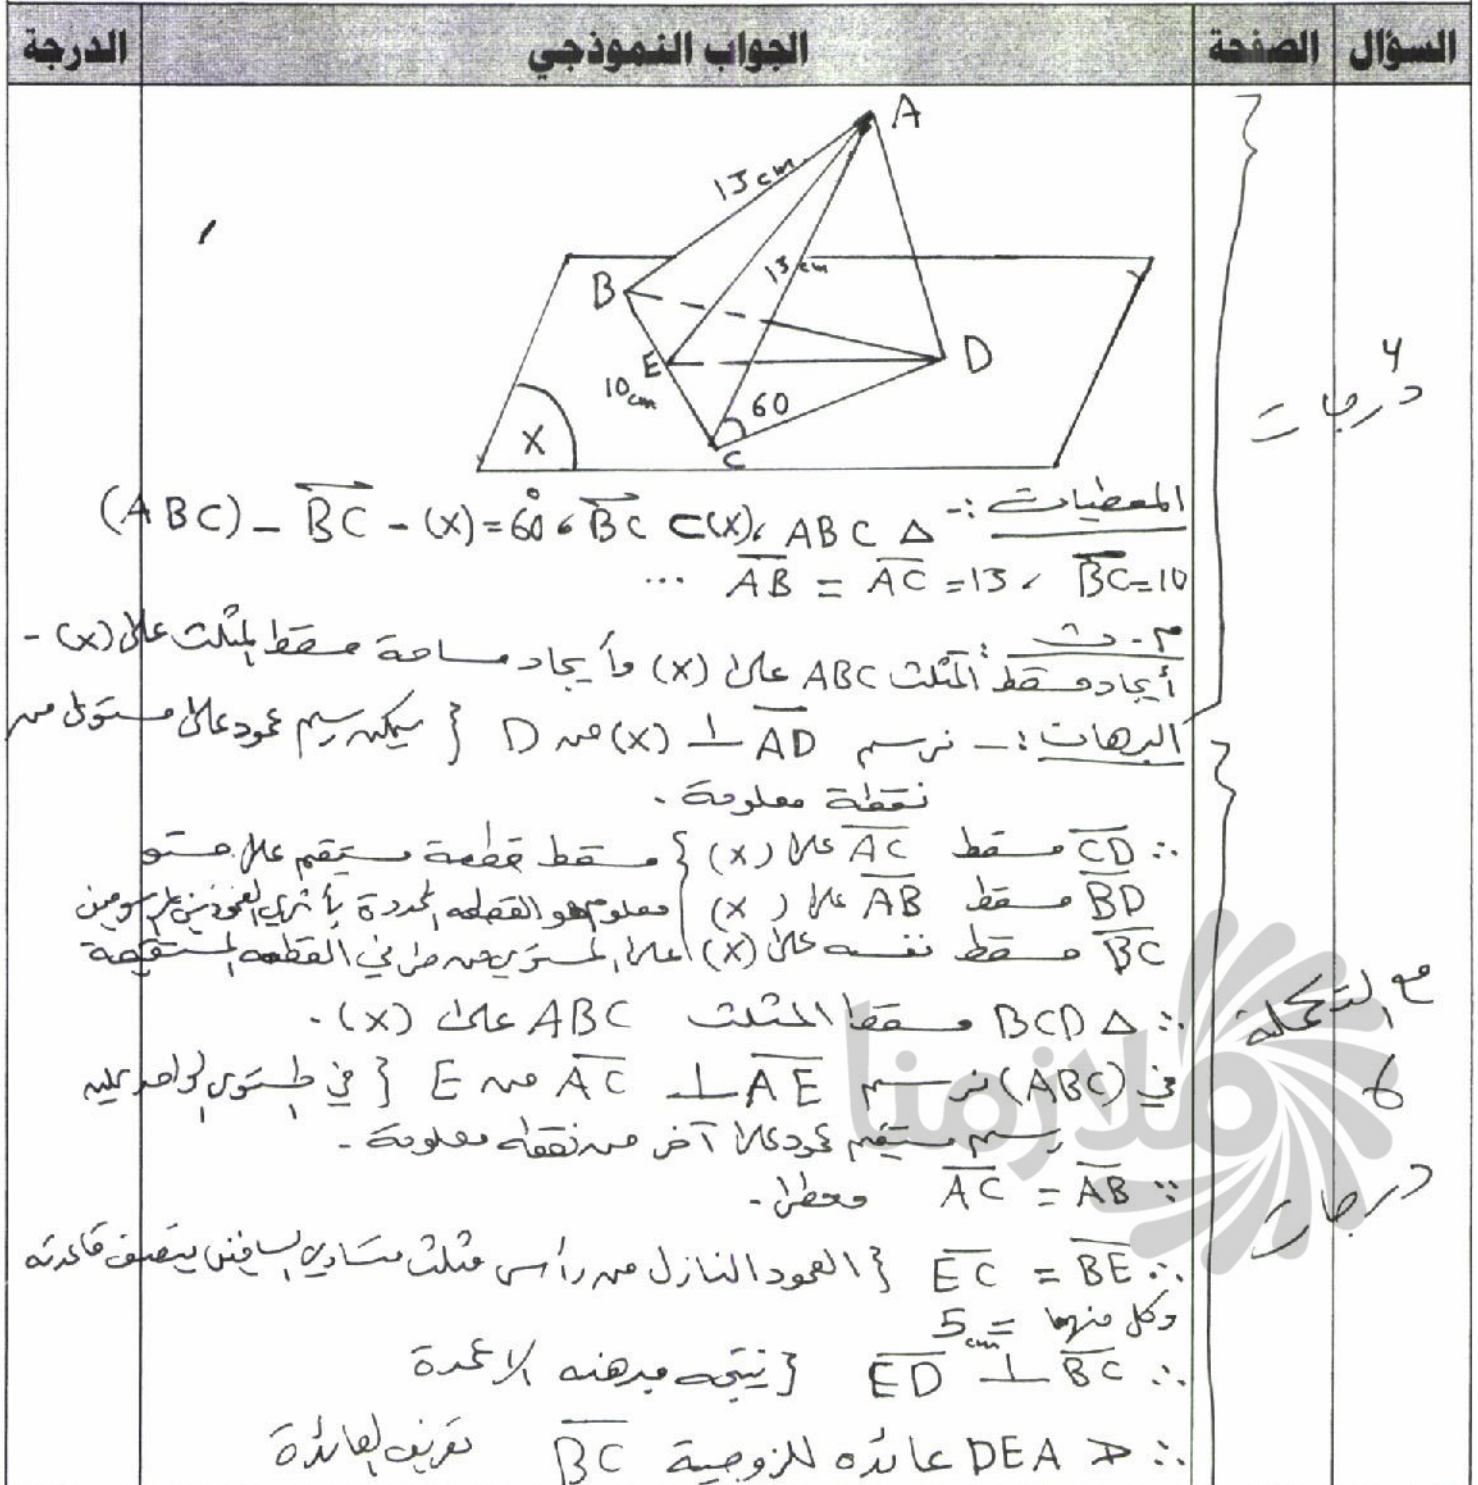 السؤال الصفحة الجواب النموذجي الدرجة
A
13 cm
13 cm
B
E
D
10 cm
60
X
C
٤
درجات
المعطيات :- △ ABC ، BC ⊂ (X) ، (ABC) – BC – (X) = 60°
BC = 10 ، AB = AC = 13 ...
م . ث :
أيجاد مسقط المثلث ABC على (X) وأيجاد مساحة مسقط المثلث على (X) -
البرهان :- نرسم AD ⊥ (X) من D } يمكن رسم عمود على مستوى من
نقطة معلومة .
∴ CD مسقط AC على (X) } مسقط قطعة مستقيم على مستو
BD مسقط AB على (X) معلوم هو القطعه المحددة بأثري العمودين المرسومين
BC مسقط نفسه على (X) على المستوي من طرفي القطعه المستقيمة
∴ △ BCD مسقط المثلث ABC على (X) .
في (ABC) نرسم AE ⊥ AC من E } في المستوى الواحد يمكن
رسم مستقيم عمود على آخر من نقطه معلومة .
∵ AB = AC معطى .
∴ BE = EC } العمود النازل من رأس مثلث متساوي الساقين ينصف قاعدته
وكل منهما = 5 cm
∴ ED ⊥ BC } نتيجه مبرهنه الاعمدة
∴ ∢ DEA عائده للزوجية BC تعريف العائدة
مع التكملة
٦
درجات
ملازمنا